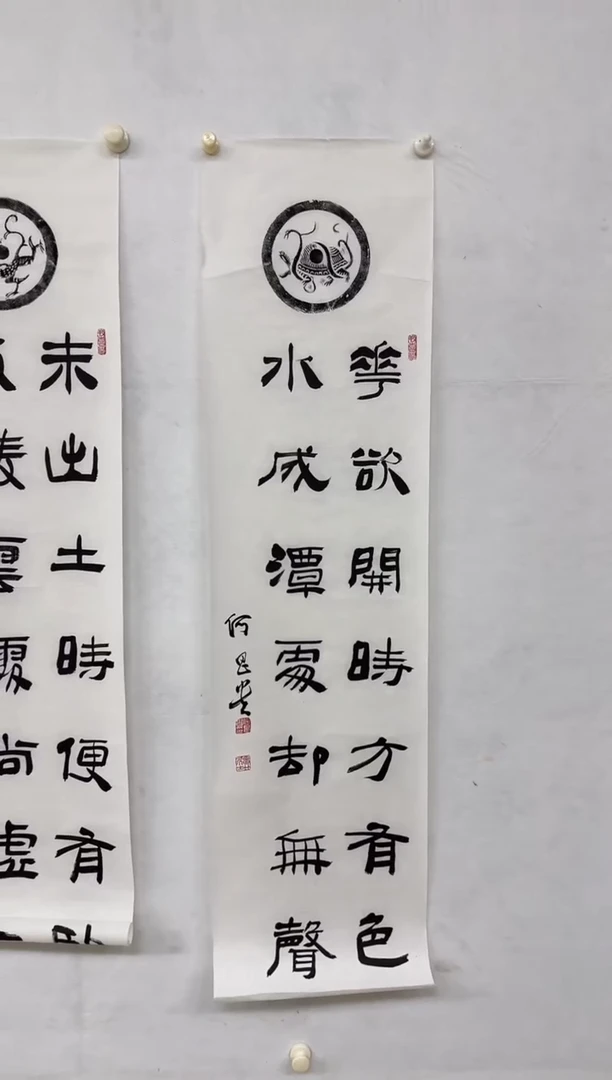 華欲開時方有色
水成潭處却無聲
何
未出土時便有
雲處尚虛